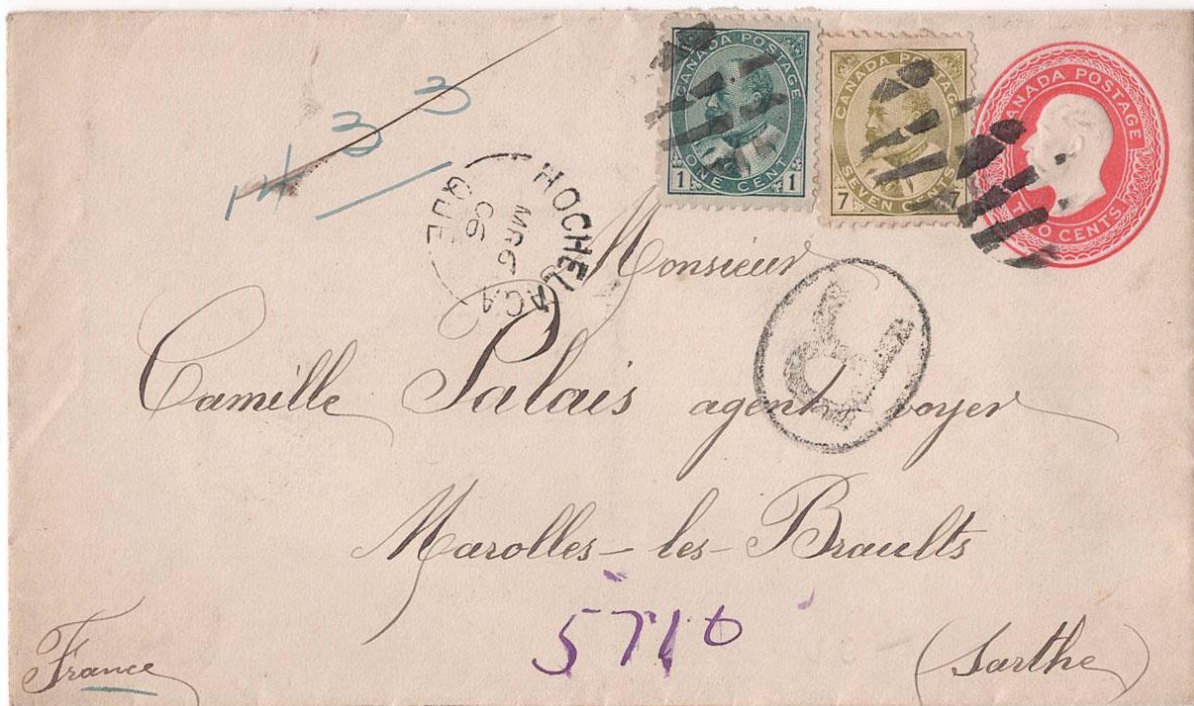 CANADA POSTAGE
ONE CENT
1 1
CANADA POSTAGE
SEVEN CENTS
7 7
CANADA POSTAGE
TWO CENTS
433
HOCHELAGA
MR 6
06
QUE
R
Monsieur
Camille Palais agent voyer
Marolles-les-Braults
5710
(Sarthe)
France